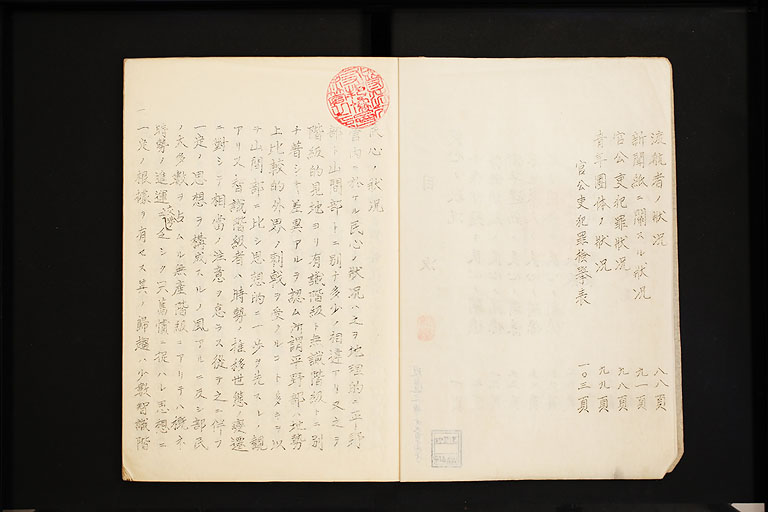 流説者ノ状況 八八頁
新聞紙ニ関スル状況 九一頁
官公吏犯罪状況 九八頁
青年團体ノ状況 九九頁
官公吏犯罪検挙表 一〇三頁
民心ノ状況
管内ニ於アル民心ノ状況ハ之ヲ地理的ニ平野
部ト山間部トニ別チ多少ノ相違アリ又之ヲ
階級的見地ヨリ有識階級ト無識階級トニ別
チ著シキ差異アルヲ認ム所謂平野部ハ地勢
上比較的外界ノ刺戟ヲ受クルコト多キヲ以
テ山間部ニ比シ思想的ニ一歩ヲ先スルノ観
アリ又智識階級者ハ時勢ノ推移世態ノ変遷
ニ対シテ相当ノ注意ヲ怠ラス従テ之ニ伴フ
一定ノ思想ヲ構成スルノ風アルニ反シ部民
ノ大多数ヲ占ムル無産階級ニアリテハ概ネ
時勢ノ進運ニ乏シク只旧慣ニ従ハレ思想ニ
一定ノ根拠ヲ有セス其ノ帰趨ハ少数智識階